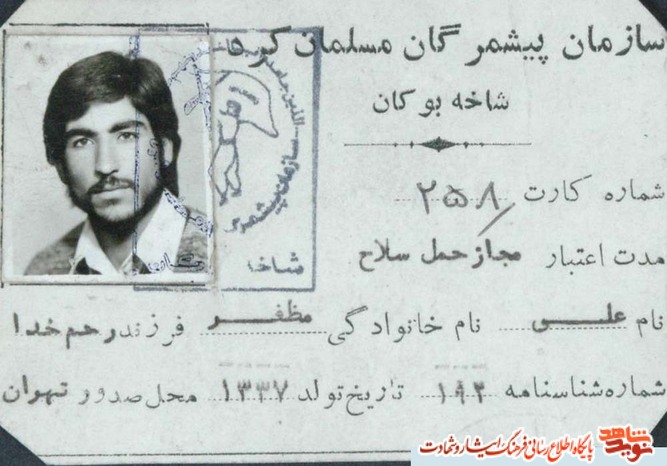 سازمان پیشمرگان مسلمان کرد
شاخه بوکان
شماره کارت ۲۵۸
مدت اعتبار مجاز حمل سلاح
نام علی نام خانوادگی مظفر فرزند رحم خدا
شماره شناسنامه ۱۹۲ تاریخ تولد ۱۳۳۷ محل صدور تهران
سازمان پیشمر
شاخه
نوید شاهد
پایگاه اطلاع رسانی فرهنگ ایثار و شهادت